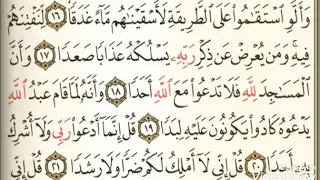 وَأَلَّوِ ٱسْتَقَٰمُوا۟ عَلَى ٱلطَّرِيقَةِ لَأَسْقَيْنَٰهُم مَّآءً غَدَقًا ١٦ لِّنَفْتِنَهُمْ
فِيهِ ۚ وَمَن يُعْرِضْ عَن ذِكْرِ رَبِّهِۦ يَسْلُكْهُ عَذَابًا صَعَدًا ١٧ وَأَنَّ
ٱلْمَسَٰجِدَ لِلَّهِ فَلَا تَدْعُوا۟ مَعَ ٱللَّهِ أَحَدًا ١٨ وَأَنَّهُۥ لَمَّا قَامَ عَبْدُ ٱللَّهِ
يَدْعُوهُ كَادُوا۟ يَكُونُونَ عَلَيْهِ لِبَدًا ١٩ قُلْ إِنَّمَآ أَدْعُوا۟ رَبِّى وَلَآ أُشْرِكُ
بِهِۦٓ أَحَدًا ٢٠ قُلْ إِنِّى لَآ أَمْلِكُ لَكُمْ ضَرًّا وَلَا رَشَدًا ٢١ قُلْ إِنِّى